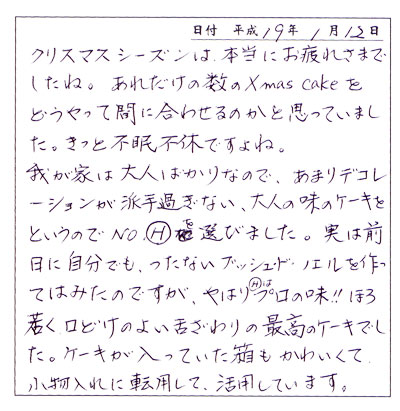 日付 平成19年 1月12日
クリスマスシーズンは、本当にお疲れさまで
したね。あれだけの数のXmas cakeを
どうやって間に合わせるのかと思っていまし
た。きっと不眠不休ですよね。
我が家は大人ばかりなので、あまりデコレ
ーションが派手過ぎない、大人の味のケーキを
というのでNO.Ⓗを選びました。実は前
日に自分でも、つたないブッシュ・ド・ノエルを作っ
てはみたのですが、やはりⒽはプロの味!!ほろ
苦く、口どけのよい舌ざわりの最高のケーキでし
た。ケーキが入っていた箱もかわいくて、
小物入れに転用して、活用しています。